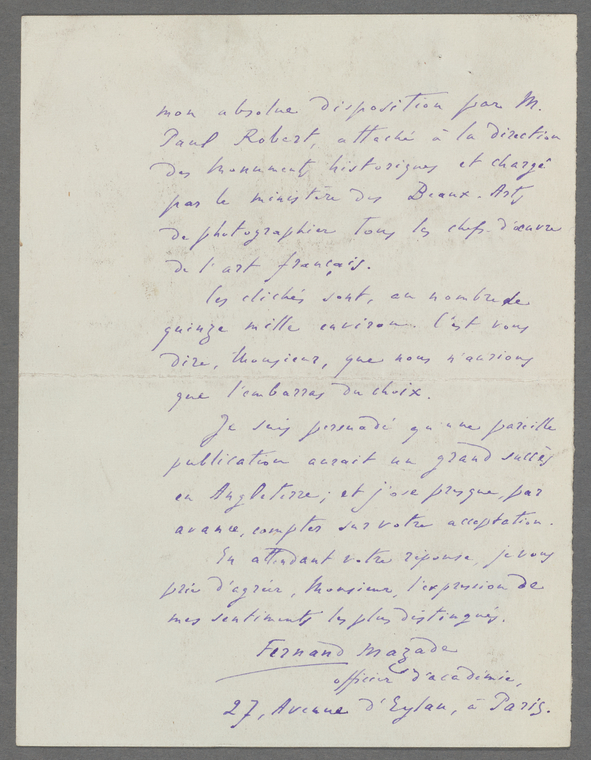 mon absolue disposition par M.
Paul Robert, attaché à la direction
des Monuments historiques et chargé
par le ministère des Beaux-Arts
de photographier tous les chefs-d'œuvre
de l'art français.
Les clichés sont, au nombre de
quinze mille environ. C'est vous
dire, Monsieur, que nous n'aurions
que l'embarras du choix.
Je suis persuadé qu'une pareille
publication aurait un grand succès
en Angleterre; et j'ose presque, par
avance, compter sur votre acceptation.
En attendant votre réponse, je vous
prie d'agréer, Monsieur, l'expression de
mes sentiments les plus distingués.
Fernand Mazade
officier d'académie,
27, Avenue d'Eylau, à Paris.